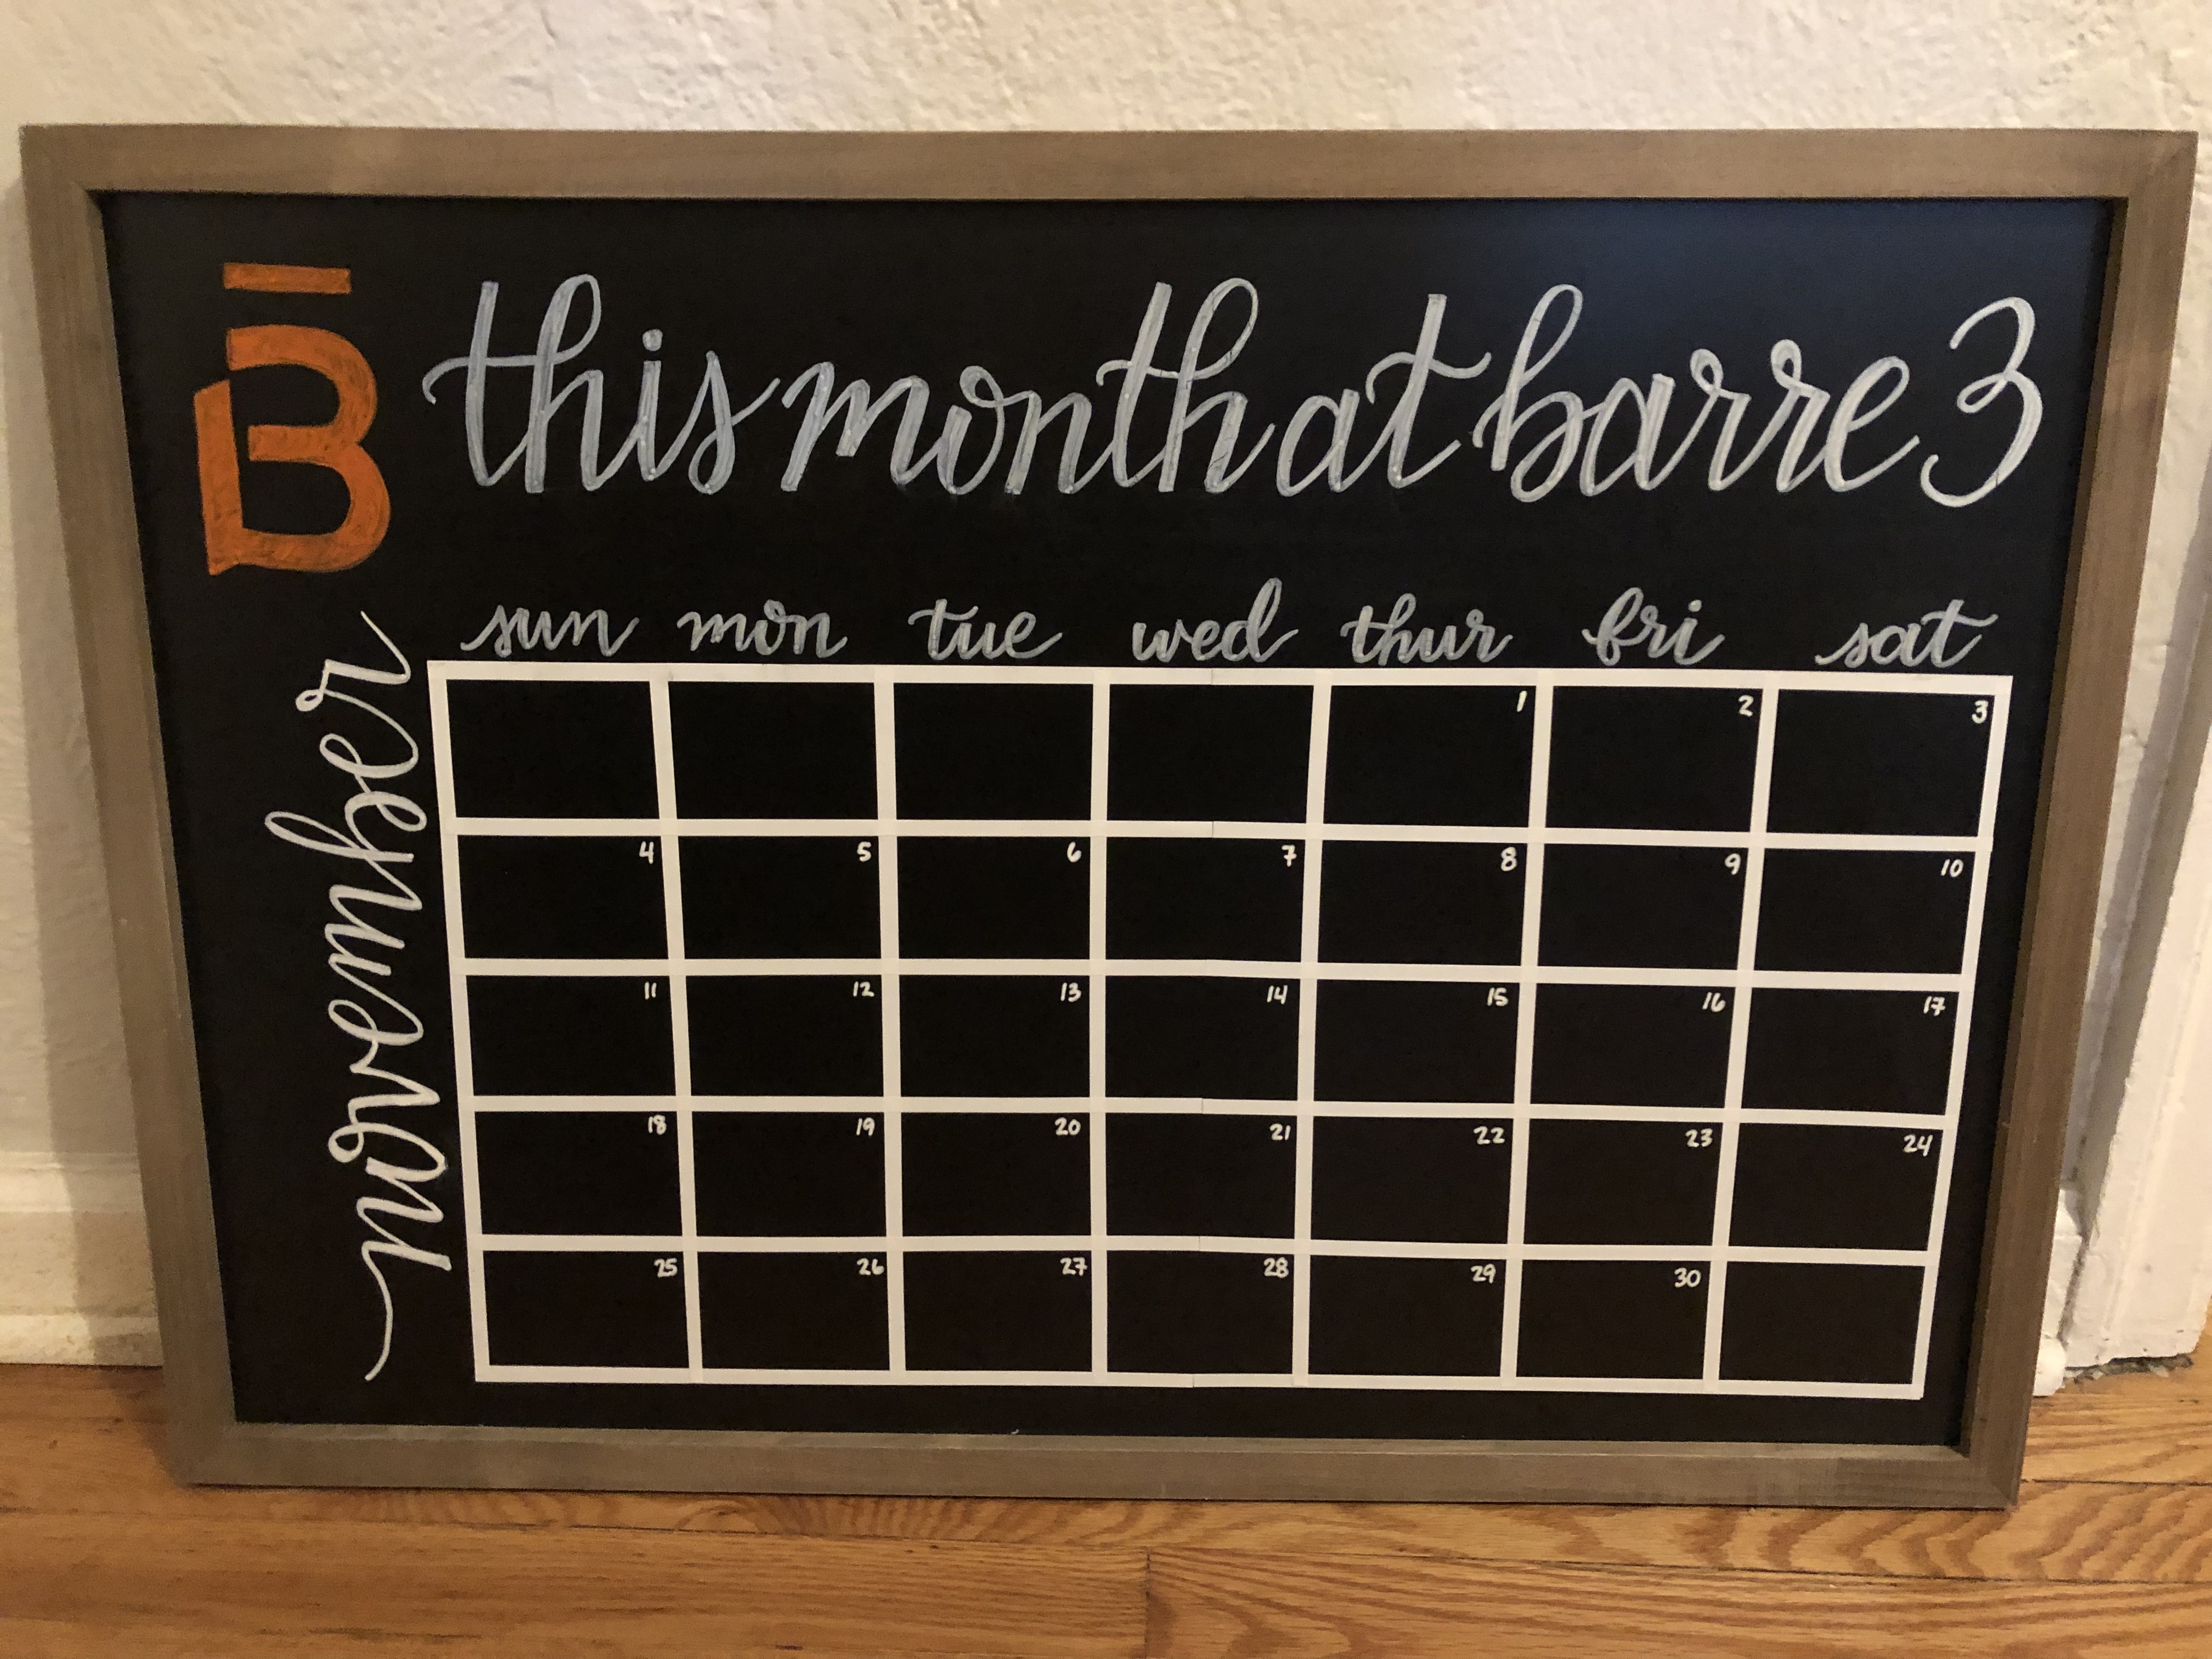 B
this month at barre3
november
sun mon tue wed thur fri sat
1 2 3
4 5 6 7 8 9 10
11 12 13 14 15 16 17
18 19 20 21 22 23 24
25 26 27 28 29 30